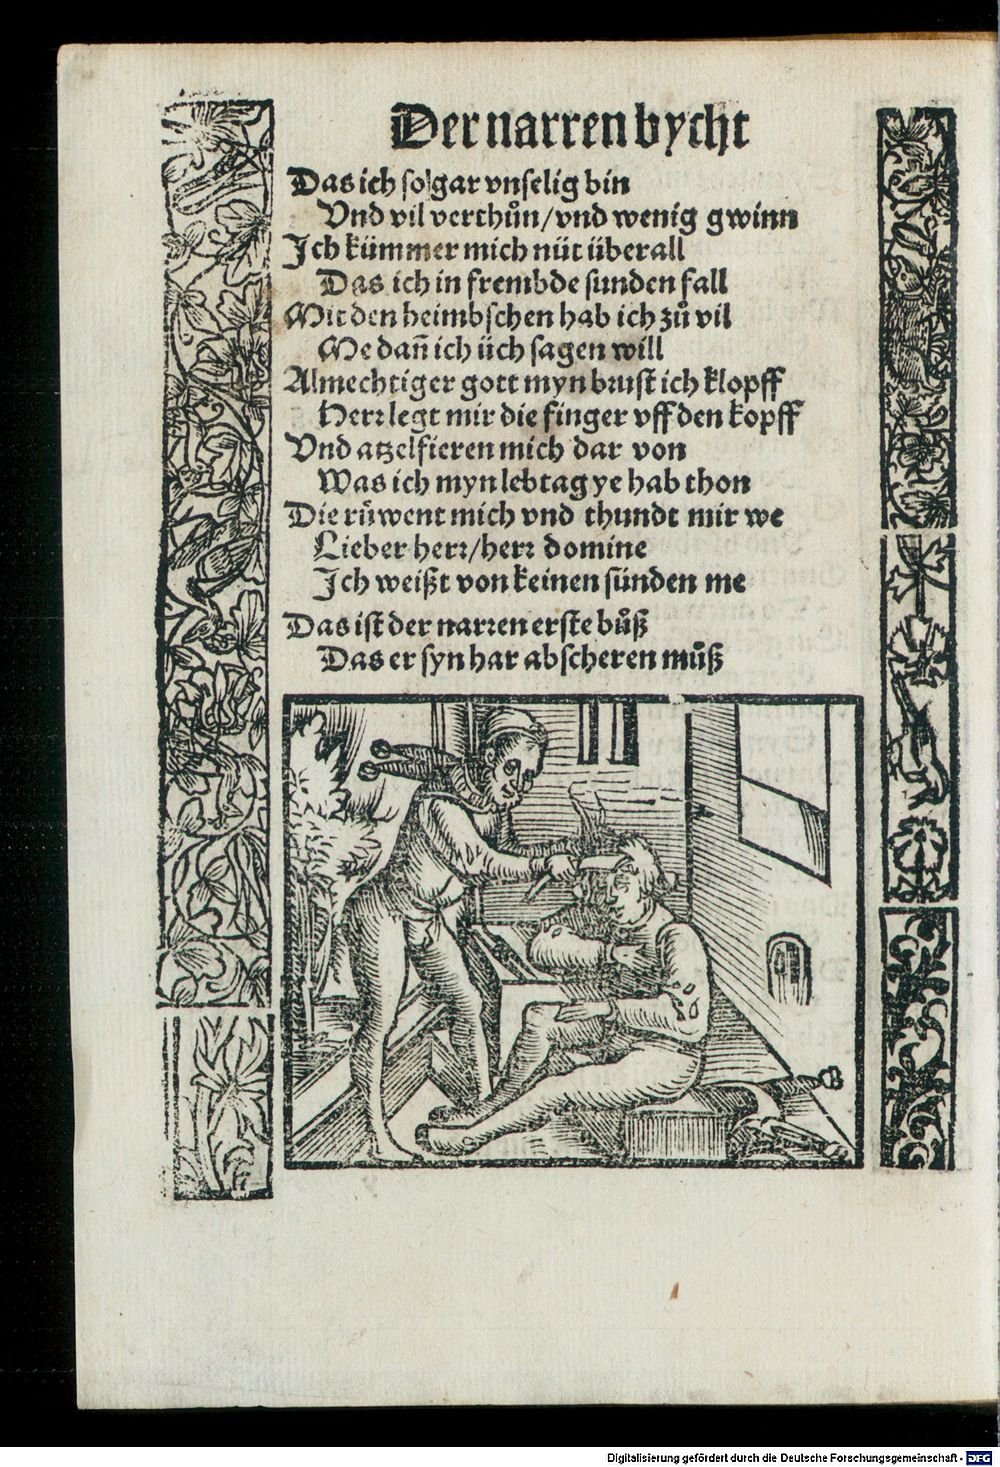 Der narren bycht
Das ich so gar vnselig bin
Vnd vil verthůn/vnd wenig gwinn
Ich kümmer mich nüt überall
Das ich in frembde sunden fall
Mit den heimbschen hab ich zů vil
Me dañ ich üch sagen will
Almechtiger gott myn brust ich klopff
Herr legt mir die finger vff den kopff
Vnd atzelfieren mich dar von
Was ich myn lebtag ye hab thon
Die rüwent mich vnd thundt mir we
Lieber herr/herr domine
Ich weißt von keinen sünden me
Das ist der narren erste bůß
Das er syn har abscheren můß
Digitalisierung gefördert durch die Deutsche Forschungsgemeinschaft - DFG